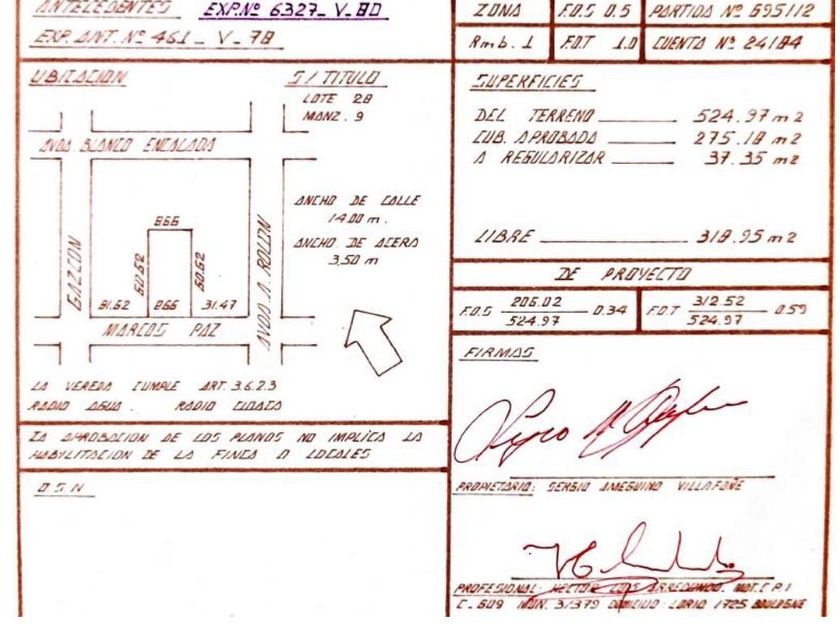 ANTECEDENTES EXP.Nº 6327_ V_ 80
EXP. ANT. Nº 461_ V_ 78
ZONA
F.O.S 0.5
PARTIDA Nº 695112
Rmb. 1
F.O.T 1.0
CUENTA Nº 24184
UBICACION
S/ TITULO
LOTE 28
MANZ. 9
AVDA BLANCO ENCALADA
GAZCON
AVDA A. ROLON
MARCOS PAZ
866
60.62
60.62
31.62 866 31.47
ANCHO DE CALLE
14.00 m.
ANCHO DE ACERA
3,50 m
LA VEREDA CUMPLE ART. 3.6.2.3
RADIO AGUA. RADIO CLOACA
LA APROBACION DE LOS PLANOS NO IMPLICA LA
HABILITACION DE LA FINCA O LOCALES
O.S.N
SUPERFICIES
DEL TERRENO 524.97 m2
CUB. APROBADA 275.18 m2
A REGULARIZAR 37.35 m2
LIBRE 318.95 m2
DE PROYECTO
F.O.S 206.02 0.34
524.97
F.O.T 312.52 0.59
524.97
FIRMAS
PROPIETARIO: SERGIO AMEGUINO VILLAFAÑE
PROFESIONAL: HECTOR LUIS ARREDONDO. MAT. C.P.I
C. 609 MUN. 3/379 DOMICILIO: LORIA 1725 BOULOGNE